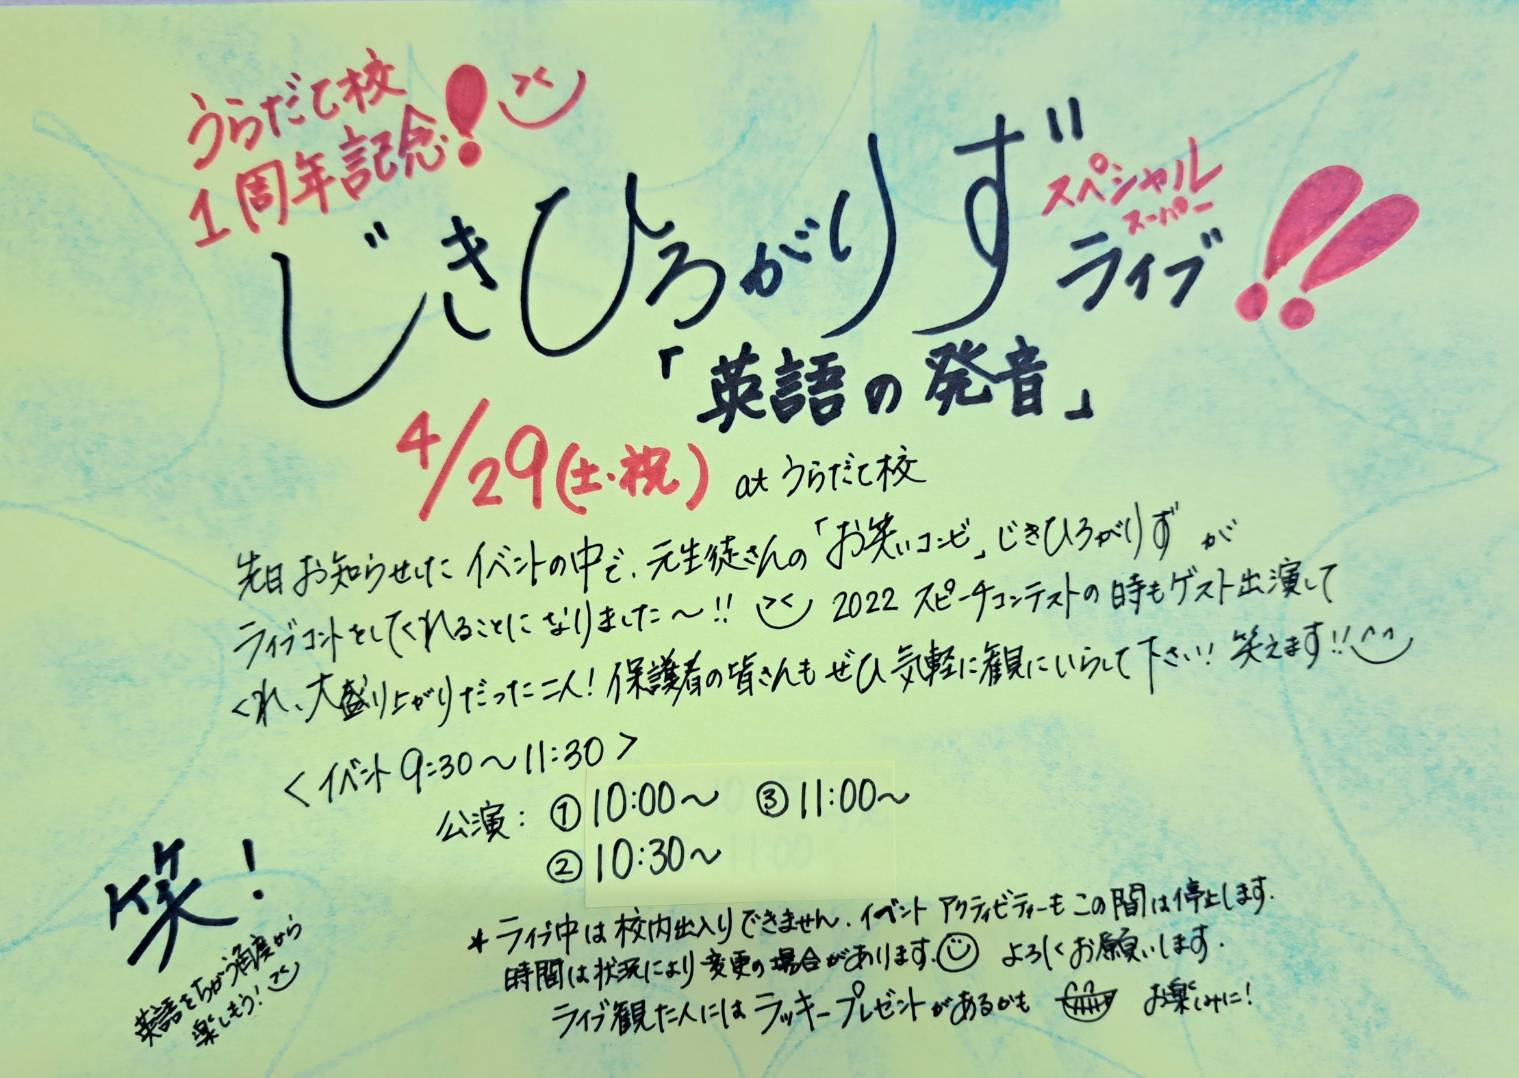 うらだて校
1周年記念!
じきひろがりず
スペシャル
スーパー
ライブ!!
「英語の発音」
4/29(土・祝) at うらだて校
先日お知らせした イベントの中で、元生徒さんの「お笑いコンビ」じきひろがりず が
ライブコントをしてくれることになりました〜!! 2022 スピーチコンテストの時もゲスト出演して
くれ、大盛り上がりだった二人! 保護者の皆さんも ぜひ気軽に観にいらして下さい! 笑えます!!
<イベント 9:30〜11:30>
公演: ①10:00〜 ③11:00〜
②10:30〜
笑!
英語をちがう角度から
楽しもう!
*ライブ中は校内出入りできません。イベント アクティビティーもこの間は停止します。
時間は状況により変更の場合があります。 よろしくお願いします。
ライブ観た人にはラッキープレゼントがあるかも お楽しみに!